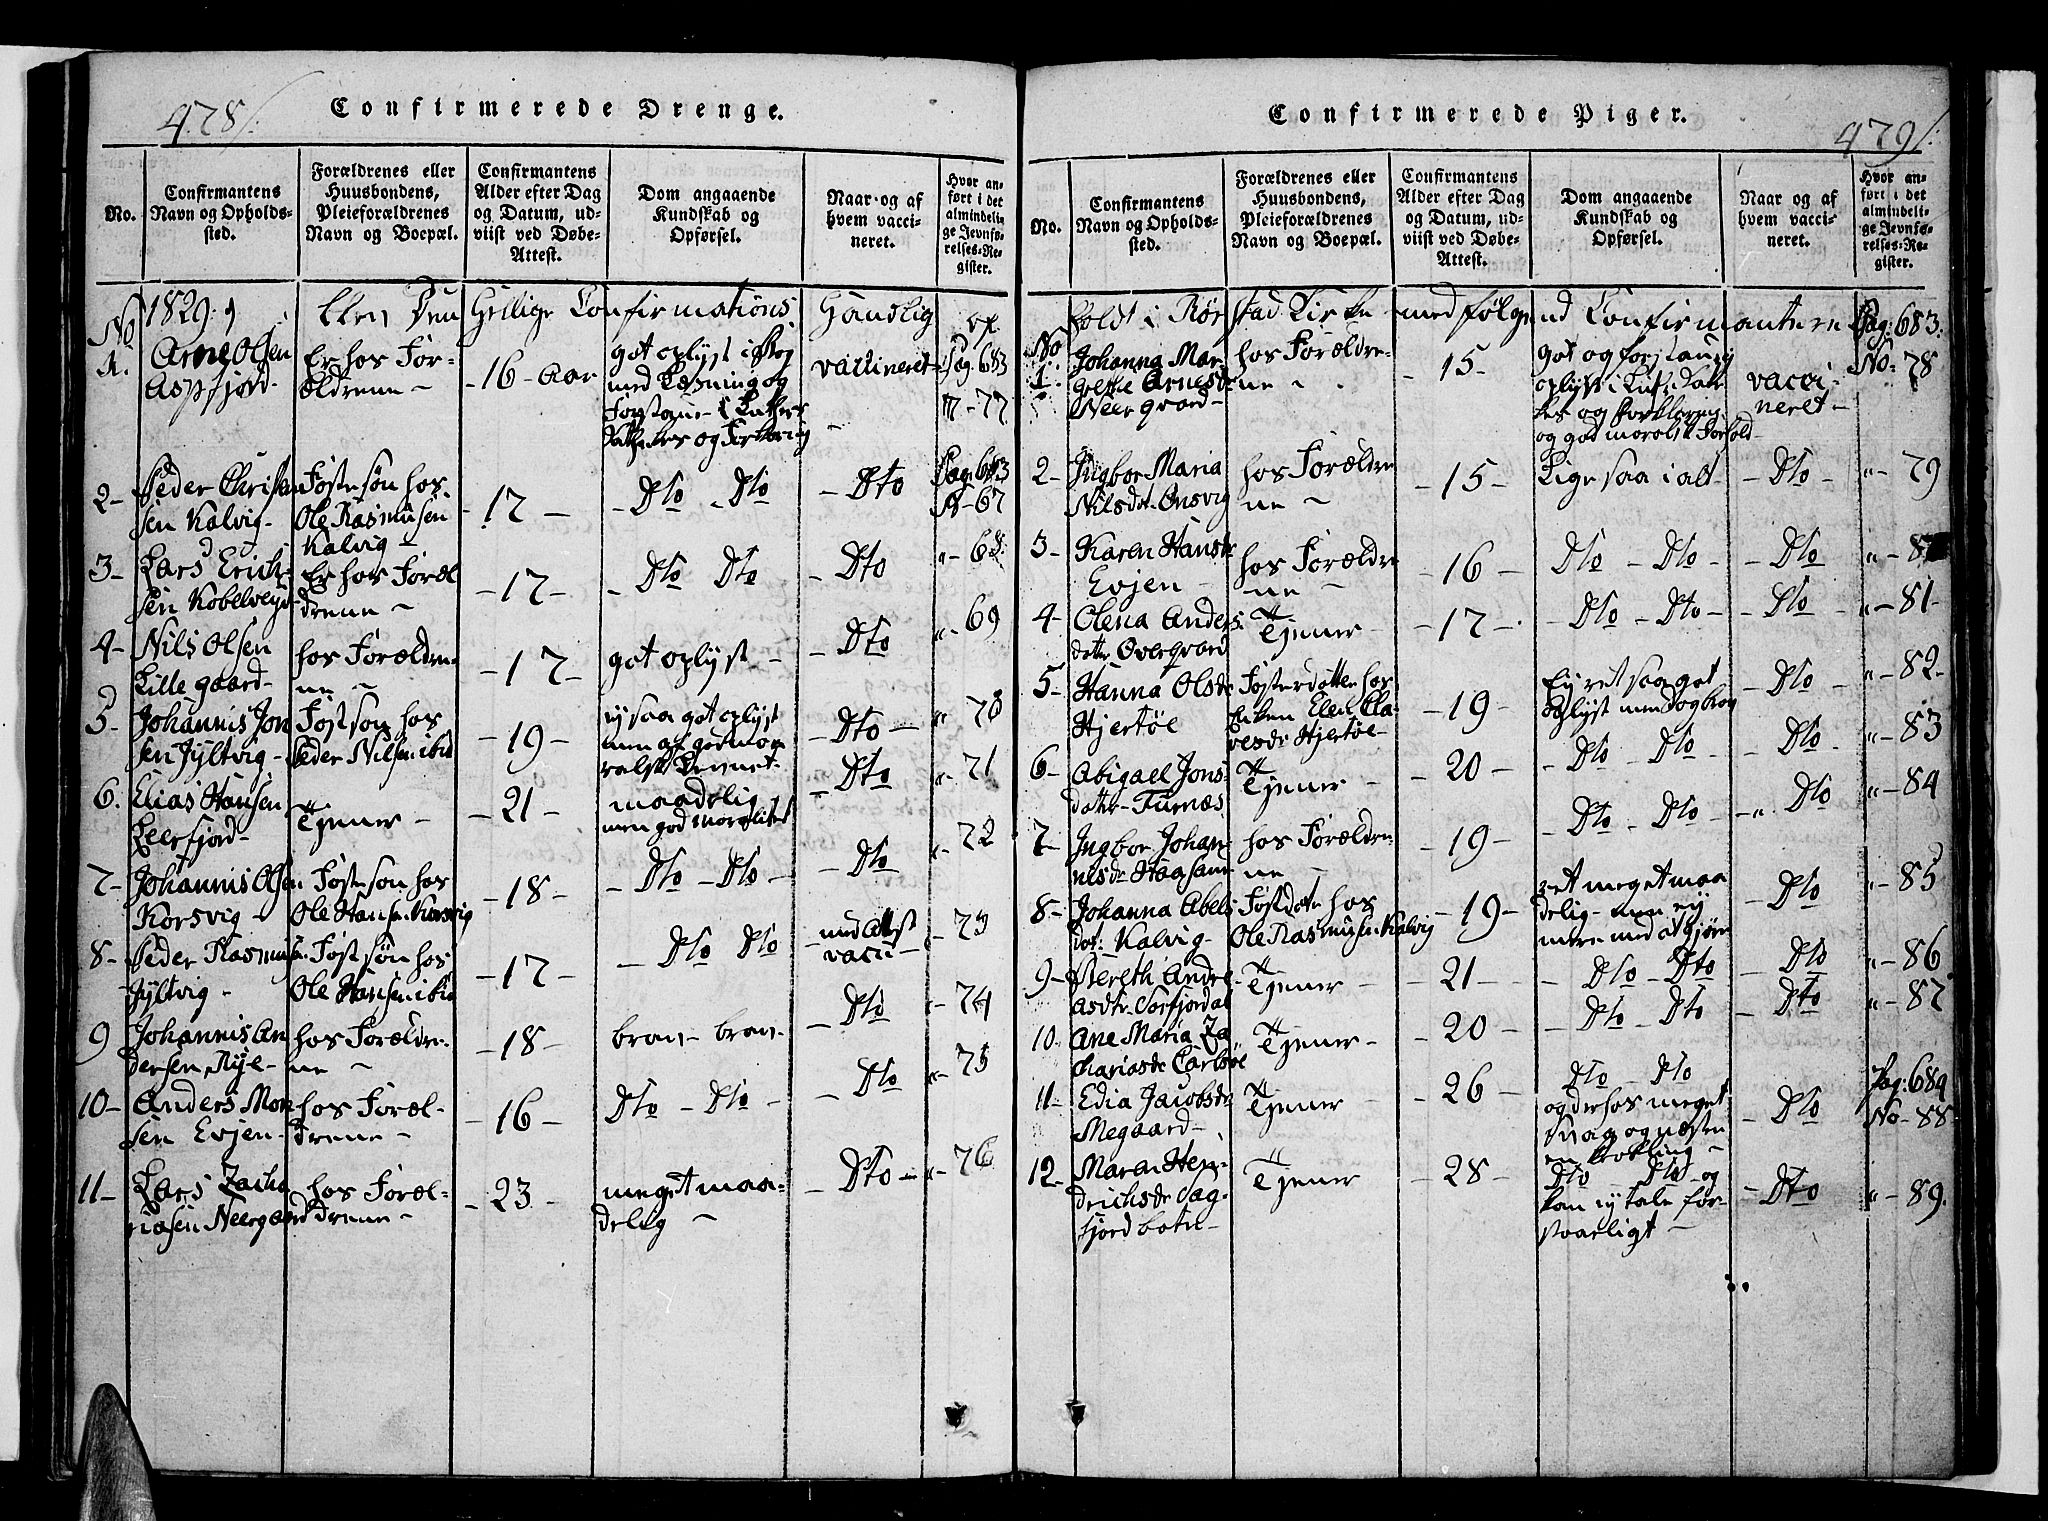 478/.
Confirmerede Drenge.
No.
Confirmantens
Navn og Opholds-
sted.
Forældrenes eller
Huusbondens,
Pleieforældrenes
Navn og Boepæl.
Confirmantens
Alder efter Dag
og Datum, ud-
viist ved Døbe-
Attest.
Dom angaaende
Kundskab og
Opførsel.
Naar og af
hvem vacci-
neret.
Hvor an-
ført i det
almindeli-
ge Jevnfø-
relses-Re-
gister.
1829 Den Hellige Confirmations
No 1. Arne Olsen
Aspfjord-
Er hos For-
ældrene -
-16- Aar
got oplyst i
med Læsning og
Luthers
og Forklaring
vaccineret
Pag. 683
n- 77
2- Peder Christian
sen Kalvig-
Fostersøn hos
Ole Rasmusen
Kalvig -
-17-
- Dto - Dto
- Dto
Pag. 683
N- 67
3- Lars Erich-
sen Kobelveyd-
Er hos Foræl
drene -
-17-
- Dto Dto
- Dto
"- 68.
4- Nils Olsen
Lillegaard-
hos Forældre-
ne -
-17-
got oplyst -
- Dto
"- 69
5- Johannis Jon
sen Fyltvig-
Fostsøn hos
Peder Nilsen ibid
-19-
ey saa got oplyst
men af god mo-
ralsk
- Dto -
"- 70
6. Elias Hansen
Leerfjord-
Tjener -
-21-
maadelig
men god moralitet
- Dto
"- 71
7- Johannis Olsen
Korsvig -
Fostsøn hos
Ole Hansen Korsvig
-18-
- Dto - Dto -
- Dto
"- 72
8- Peder Rasmus
Fyltvig -
Fostsøn hos
Ole Hansen ibid
-17-
- Dto Dto
med Attest
vacci-
- 73
9 Johannis An
dersen Rye-
hos Forældre-
ne -
-18-
brav - brav -
- Dto
"- 74
10- Anders Mon
sen Evjen-
hos Foræl-
drene -
-16-
Dto - Dto -
- Dto
"- 75
11- Lars Zacha
riasen Neergaard
hos Foræl-
drene -
-23-
meget maa-
delig -
- Dto -
"- 76
479/.
Confirmerede Piger.
No.
Confirmantens
Navn og Opholds-
sted.
Forældrenes eller
Huusbondens,
Pleieforældrenes
Navn og Boepæl.
Confirmantens
Alder efter Dag
og Datum, ud-
viist ved Døbe-
Attest.
Dom angaaende
Kundskab og
Opførsel.
Naar og af
hvem vacci-
neret.
Hvor an-
ført i det
almindeli-
ge Jevnfø-
relses-Re-
gister.
holdt i Rørstad Kirke med følgend Confirmantere Pag. 683.
No 1. Johanna Mar
grethe Arnesdr
Neergaard-
hos Forældre-
ne -
- 15-
got og forstandig
oplyst i Luth. Kate
og Forklaring
og god moralsk Forhold
vacci-
neret -
No- 78
2- Ingbor Maria
Nilsdt- Onsvig
hos Forældre
ne -
-15-
Lige saa i alt
- Dto -
"- 79
3- Karen Hansdr
Evjen -
hos Forældre
ne -
-16-
Dto - Dto -
- Dto
4- Olena Anders
datter Overgaard
Tjener -
-17-
- Dto - Dto -
- Dto -
"- 81-
5- Hanna Olsdr
Hjertøe
Fosterdatter hos
Enken Elen Cla-
vesdr Hjertøe-
-19-
Ey ret saa got
oplyst men dog brav
- Dto
"- 82-
6- Abigael Jons-
datter- Furnæs
Tjener -
-20-
- Dto - Dto -
- Dto -
"- 83
7- Ingbor Johan
nisdr
hos Forældre-
ne -
-19-
- Dto - Dto -
-". Dto
"- 84
8- Johanna Abels
dat: Kalvig-
Fostdatr hos
Ole Rasmusen Kalvig
-19-
ret meget maa
delig - men ey
mere med at giøre
- Dto
"- 85
9- Bereth Andre-
asdtr- Sørfjordal
Tjener -
-21-
- Dto - Dto
- Dto
"- 86
10. Ane Maria Za
chariasdr
Tjener -
-20
- Dto - Dto
- Dto
"- 87
11- Edia Jacobsdr
Megaard-
Tjener -
-26-
Dto - Dto
og derhos meget
svag og næsten
en Krøbling -
- Dto
Pag: 684
No- 88
12- Maren Hen-
drichsdr Sag-
fjord botn-
Tjener
-28-
Dto - Dto - og
kan ey tale for-
staaeligt -
- Dto
"- 89.